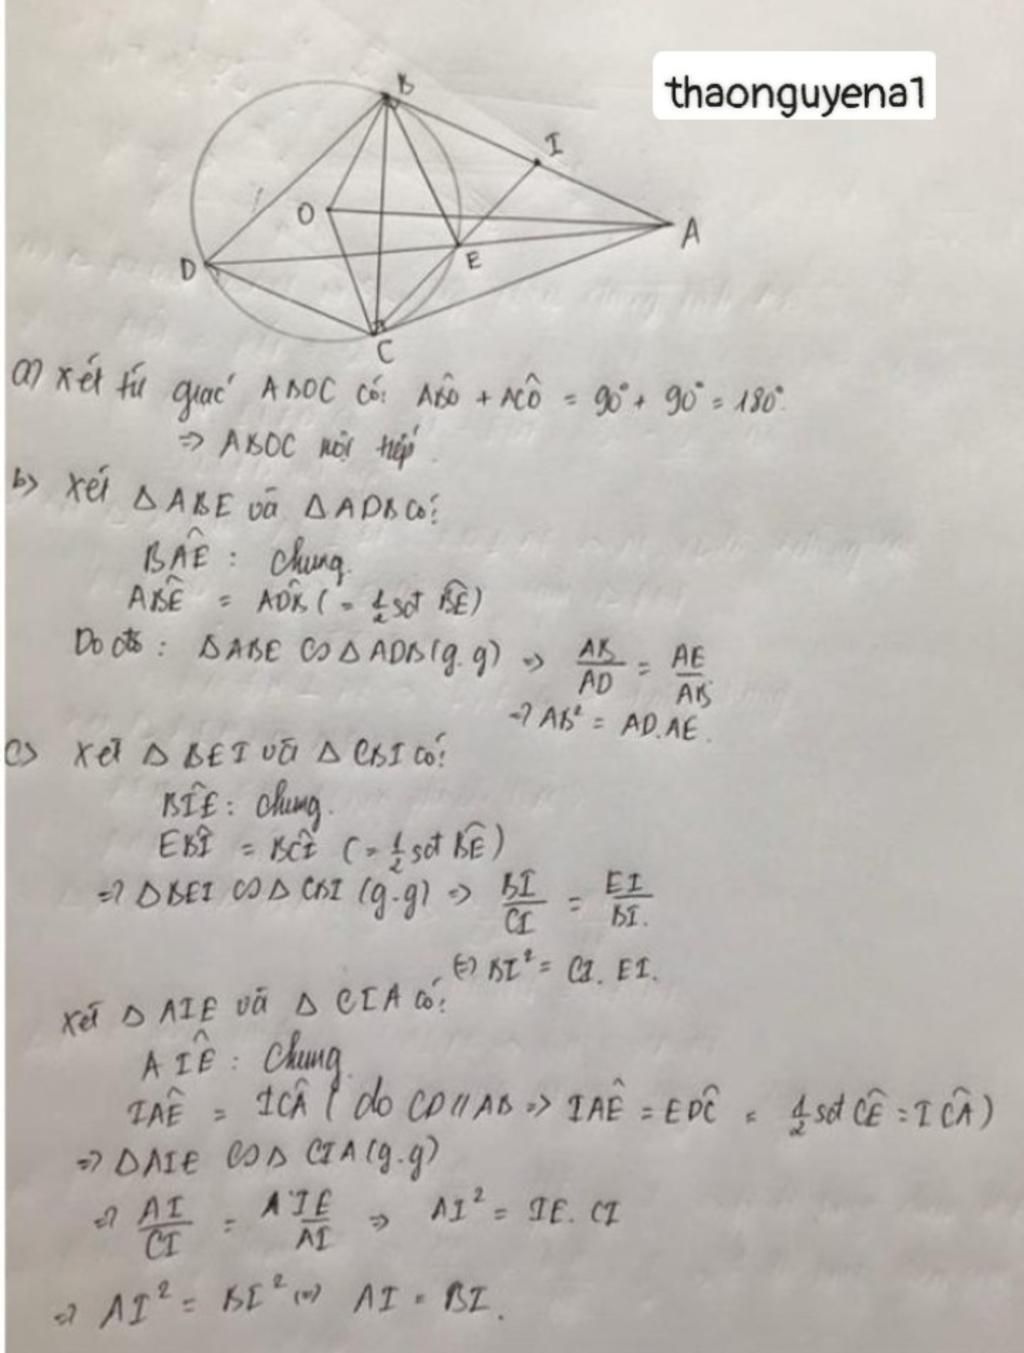 thaonguyena1
B
I
O
A
D
E
C
a) Xét tứ giác ABOC có: AB̂O + AĈO = 90° + 90° = 180°.
=> ABOC nội tiếp.
b) Xét Δ ABE và Δ ADB có:
BÂE : chung.
AB̂E = AD̂B (= 1/2 sđ BÊ)
Do đó: Δ ABE ∽ Δ ADB (g.g) => AB/AD = AE/AB
=> AB² = AD.AE.
c) Xét Δ BEI và Δ CBI có:
BÎE : chung.
EB̂I = BĈI (= 1/2 sđ BÊ)
=> Δ BEI ∽ Δ CBI (g.g) => BI/CI = EI/BI.
(=) BI² = CI. EI.
Xét Δ AIE và Δ CIA có:
AÎE : Chung.
IÂE = IĈA ( do CD // AB => IÂE = ED̂C = 1/2 sđ CÊ = IĈA)
=> Δ AIE ∽ Δ CIA (g.g)
=> AI/CI = IE/AI => AI² = IE. CI
=> AI² = BI² (=) AI = BI.